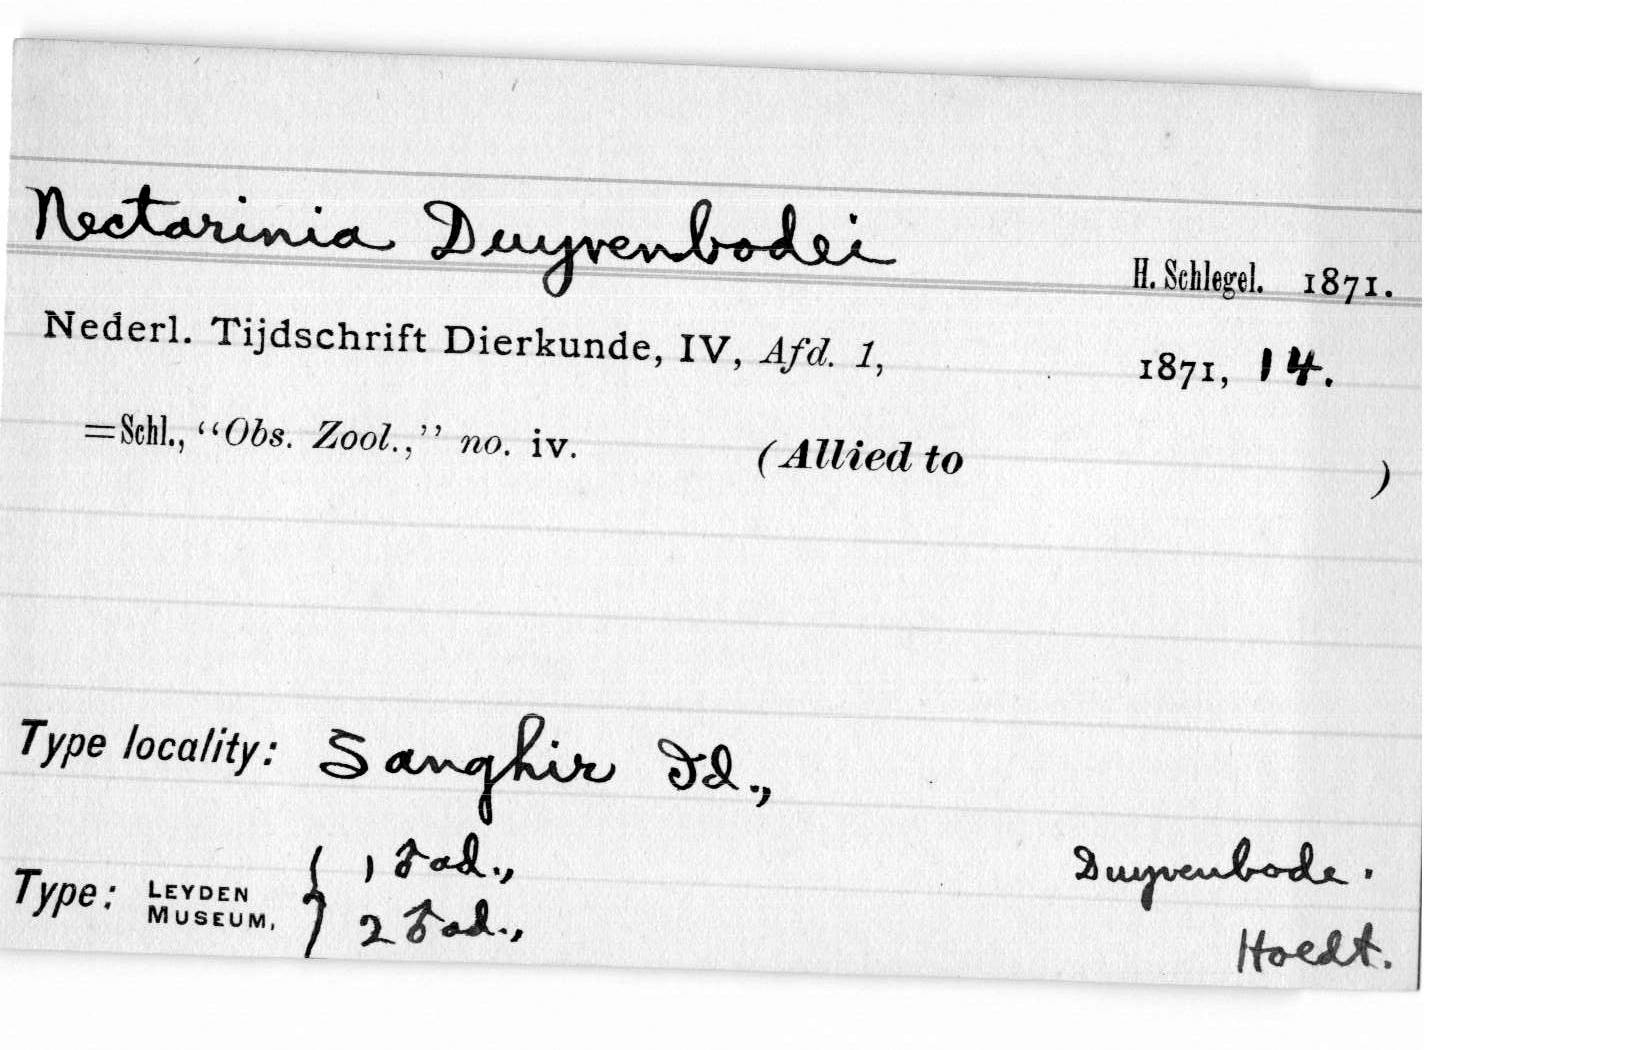 Nectarinia Duyvenbodei
H. Schlegel. 1871.
Nederl. Tijdschrift Dierkunde, IV, Afd. 1, 1871, 14.
=Schl., “Obs. Zool.,” no. iv. (Allied to )
Type locality: Sanghir Id.,
Type: LEYDEN MUSEUM, { 1 ♂ ad., Duyvenbode.
2 ♂ ad., Hoedt.